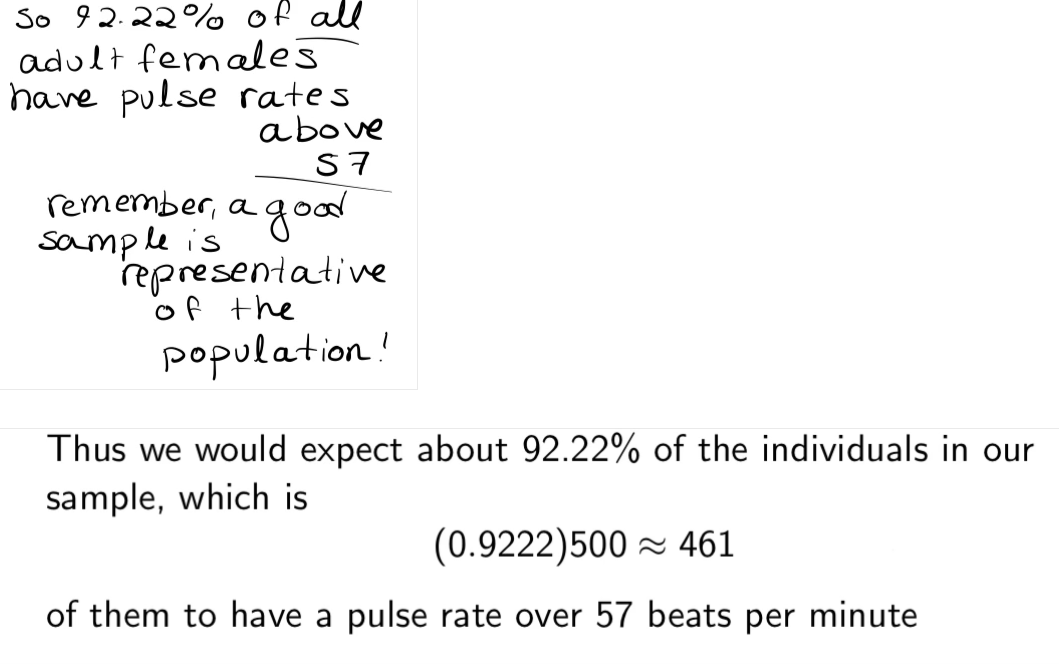 so 92.22% of all
adult females
have pulse rates
above
57
remember, a good
sample is
representative
of the
population!
Thus we would expect about 92.22% of the individuals in our
sample, which is
(0.9222)500 ≈ 461
of them to have a pulse rate over 57 beats per minute